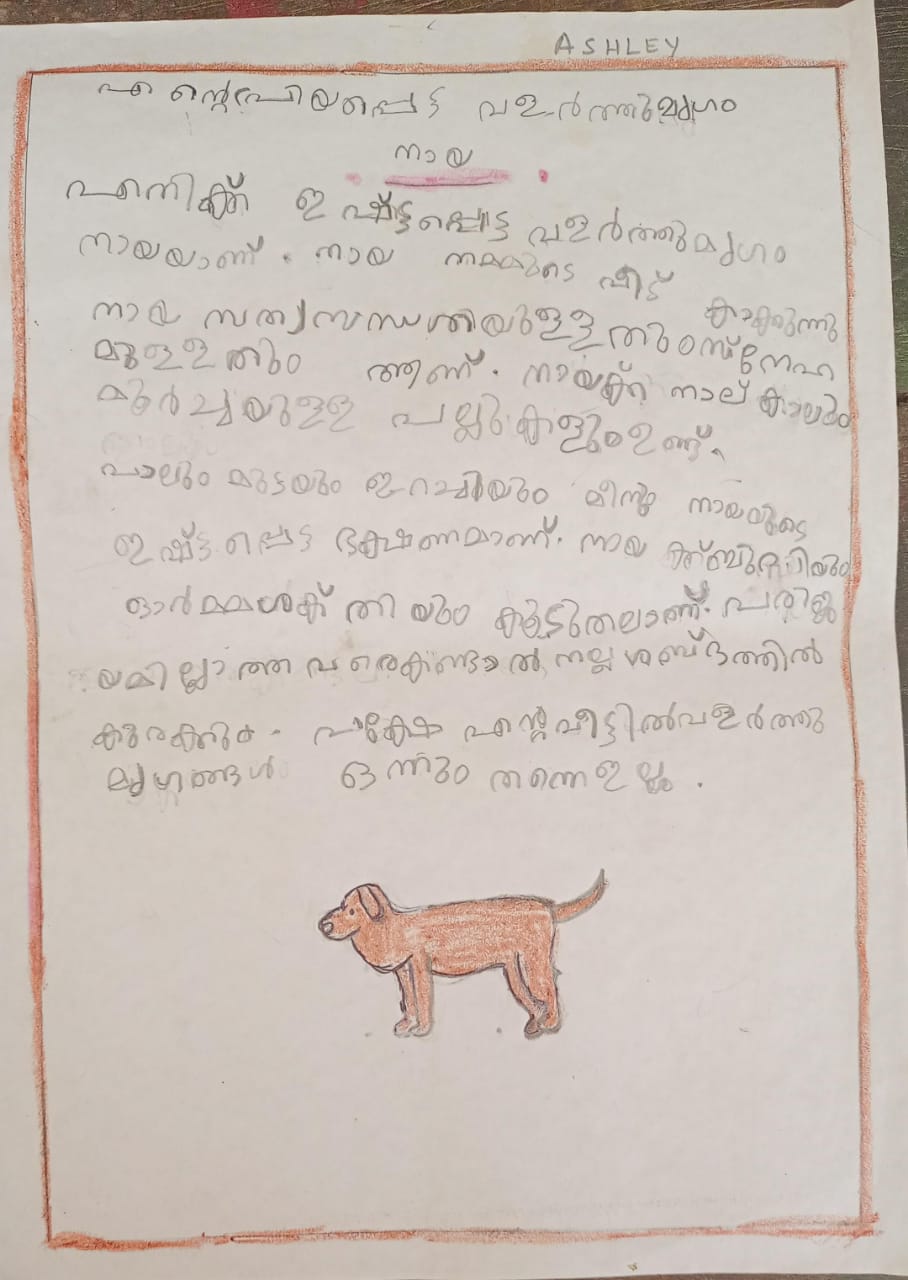 ASHLEY
എന്റെപ്രിയപ്പെട്ട വളർത്തുമൃഗം
നായ
എനിക്ക് ഇഷ്ട്ടപ്പെട്ട വളർത്തുമൃഗം
നായയാണ്. നായ നമ്മുടെ വീട് കാക്കുന്നു
നായ സത്യസന്ധതിയുള്ളതും സ്നേഹ
മുള്ളതും ആണ്. നായക്ക് നാല് കാലും
മൂർച്ചയുള്ള പല്ലുകളും ഉണ്ട്.
പാലും മുട്ടയും ഇറച്ചിയും മീനും നായയുടെ
ഇഷ്ട്ടപ്പെട്ട ഭക്ഷണമാണ്. നായ ക്ക്ബുദ്ധിയും
ഓർമ്മശക്തിയും കൂടുതലാണ്. പരിച
യമില്ലാത്തവരെകണ്ടാൽ നല്ല ശബ്ദത്തിൽ
കുരക്കും. പക്ഷേ എന്റെവീട്ടിൽവളർത്തു
മൃഗങ്ങൾ ഒന്നും തന്നെഇല്ല.